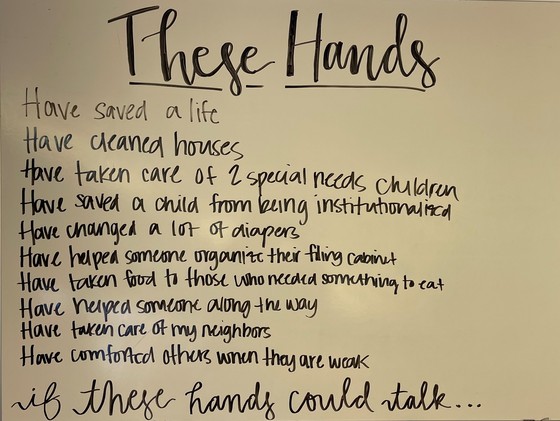 These Hands
Have saved a life
Have cleaned houses
Have taken care of 2 special needs children
Have saved a child from being institutionalized
Have changed a lot of diapers
Have helped someone organize their filing cabinet
Have taken food to those who needed something to eat
Have helped someone along the way
Have taken care of my neighbors
Have comforted others when they are weak
if these hands could talk...